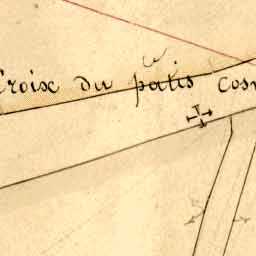 Croix du patis Cosn